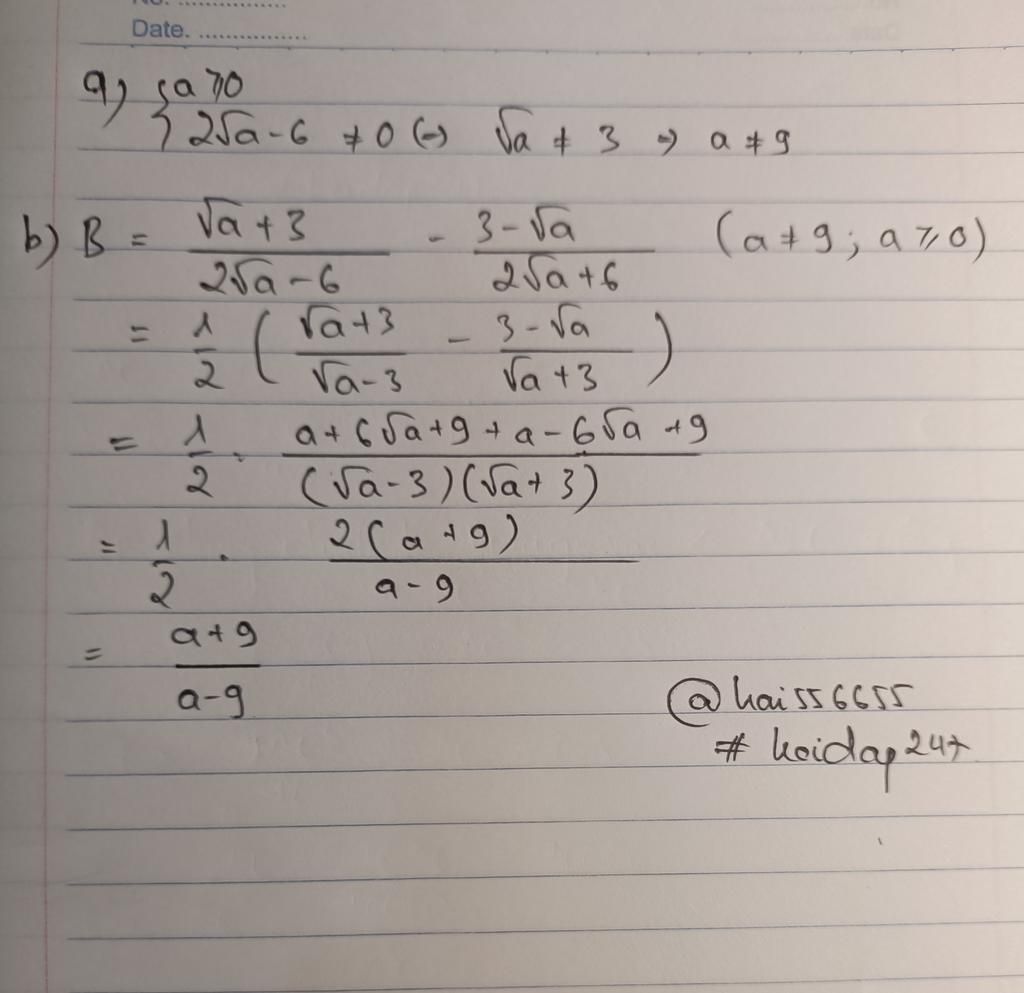 Date. ................
a) { a ⩾ 0
2√a - 6 ≠ 0 (=) √a ≠ 3 => a ≠ 9
b) B = (√a + 3)/(2√a - 6) - (3 - √a)/(2√a + 6) (a ≠ 9; a ⩾ 0)
= 1/2 ( (√a + 3)/(√a - 3) - (3 - √a)/(√a + 3) )
= 1/2 . (a + 6√a + 9 + a - 6√a + 9)/((√a - 3)(√a + 3))
= 1/2 . 2(a + 9)/(a - 9)
= (a + 9)/(a - 9)
@hai556655
# hoidap247